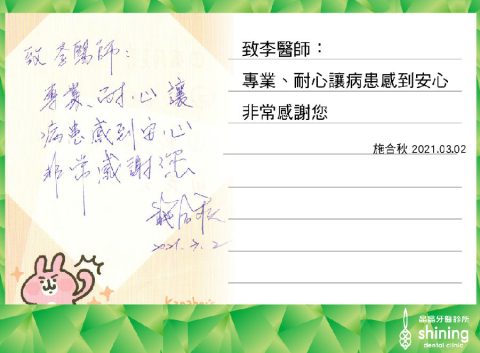 致李醫師:
專業、耐心讓
病患感到安心
非常感謝您
施合秋
2021.3.2
致李醫師：
專業、耐心讓病患感到安心
非常感謝您
施合秋 2021.03.02
晶晶牙醫診所
shining
dental clinic